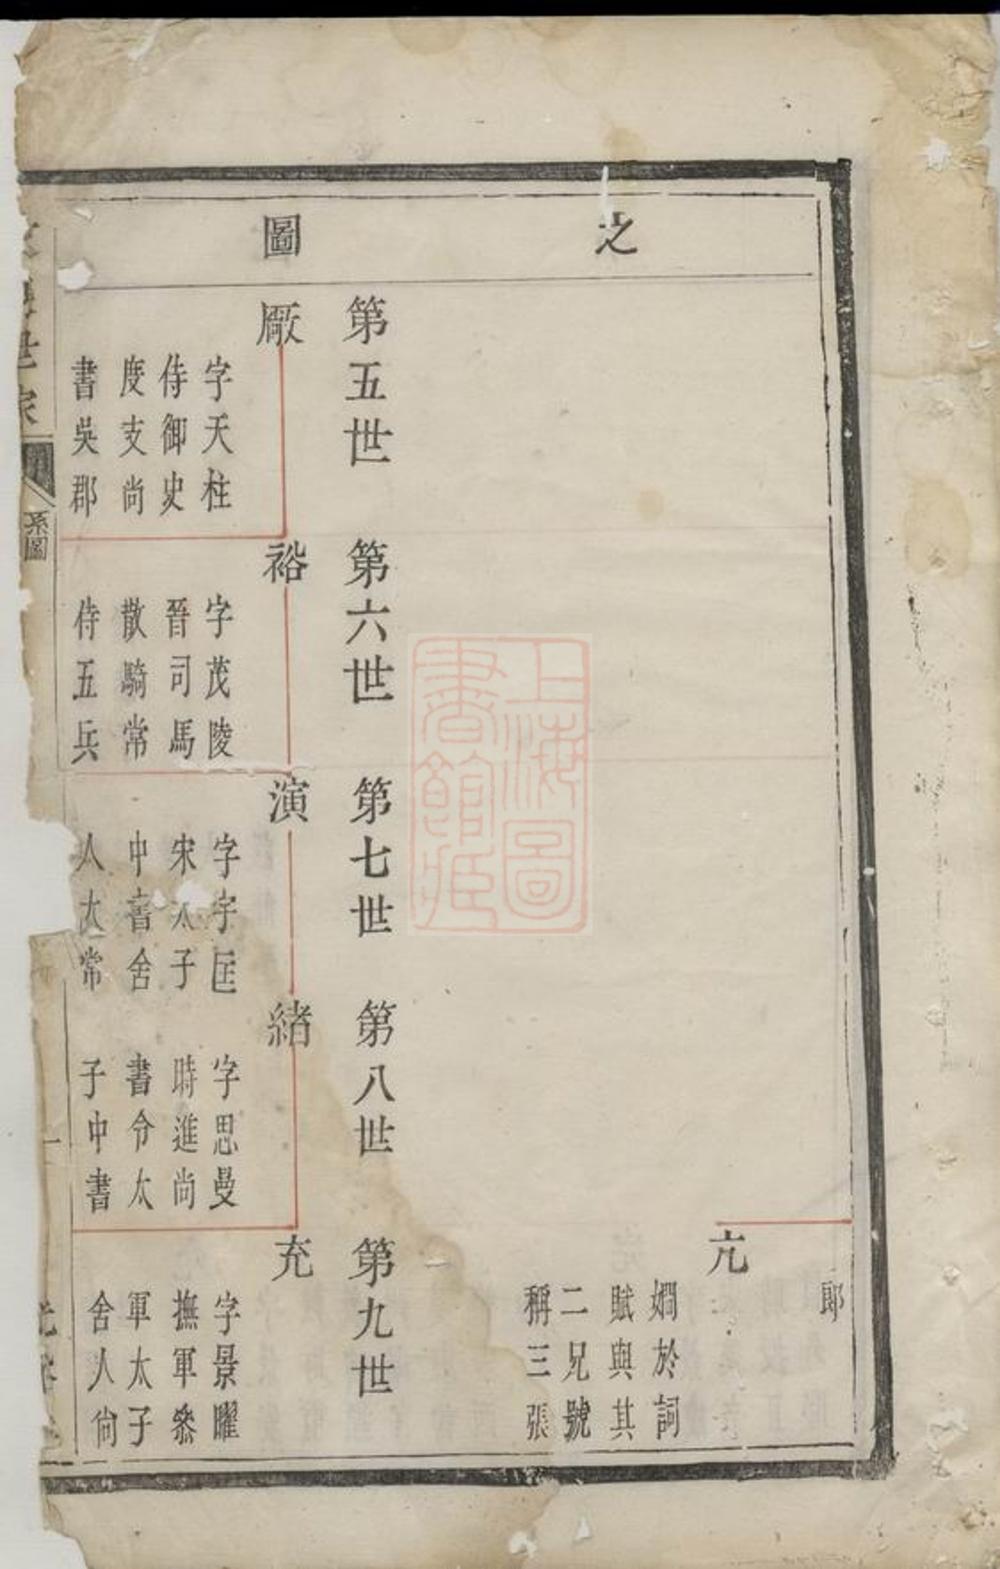 之
圖
郎
亢
嫺於詞
賦與其
二兄號
稱三張
第五世
厰
字天柱
侍御史
度支尚
書吳郡
第六世
裕
字茂陵
晉司馬
散騎常
侍五兵
第七世
演
字宇匡
宋太子
中書舍
人太常
第八世
緒
字思曼
時進尚
書令太
子中書
第九世
充
字景曜
撫軍叅
軍太子
舍人尙
世家
系圖
上海圖
書館藏